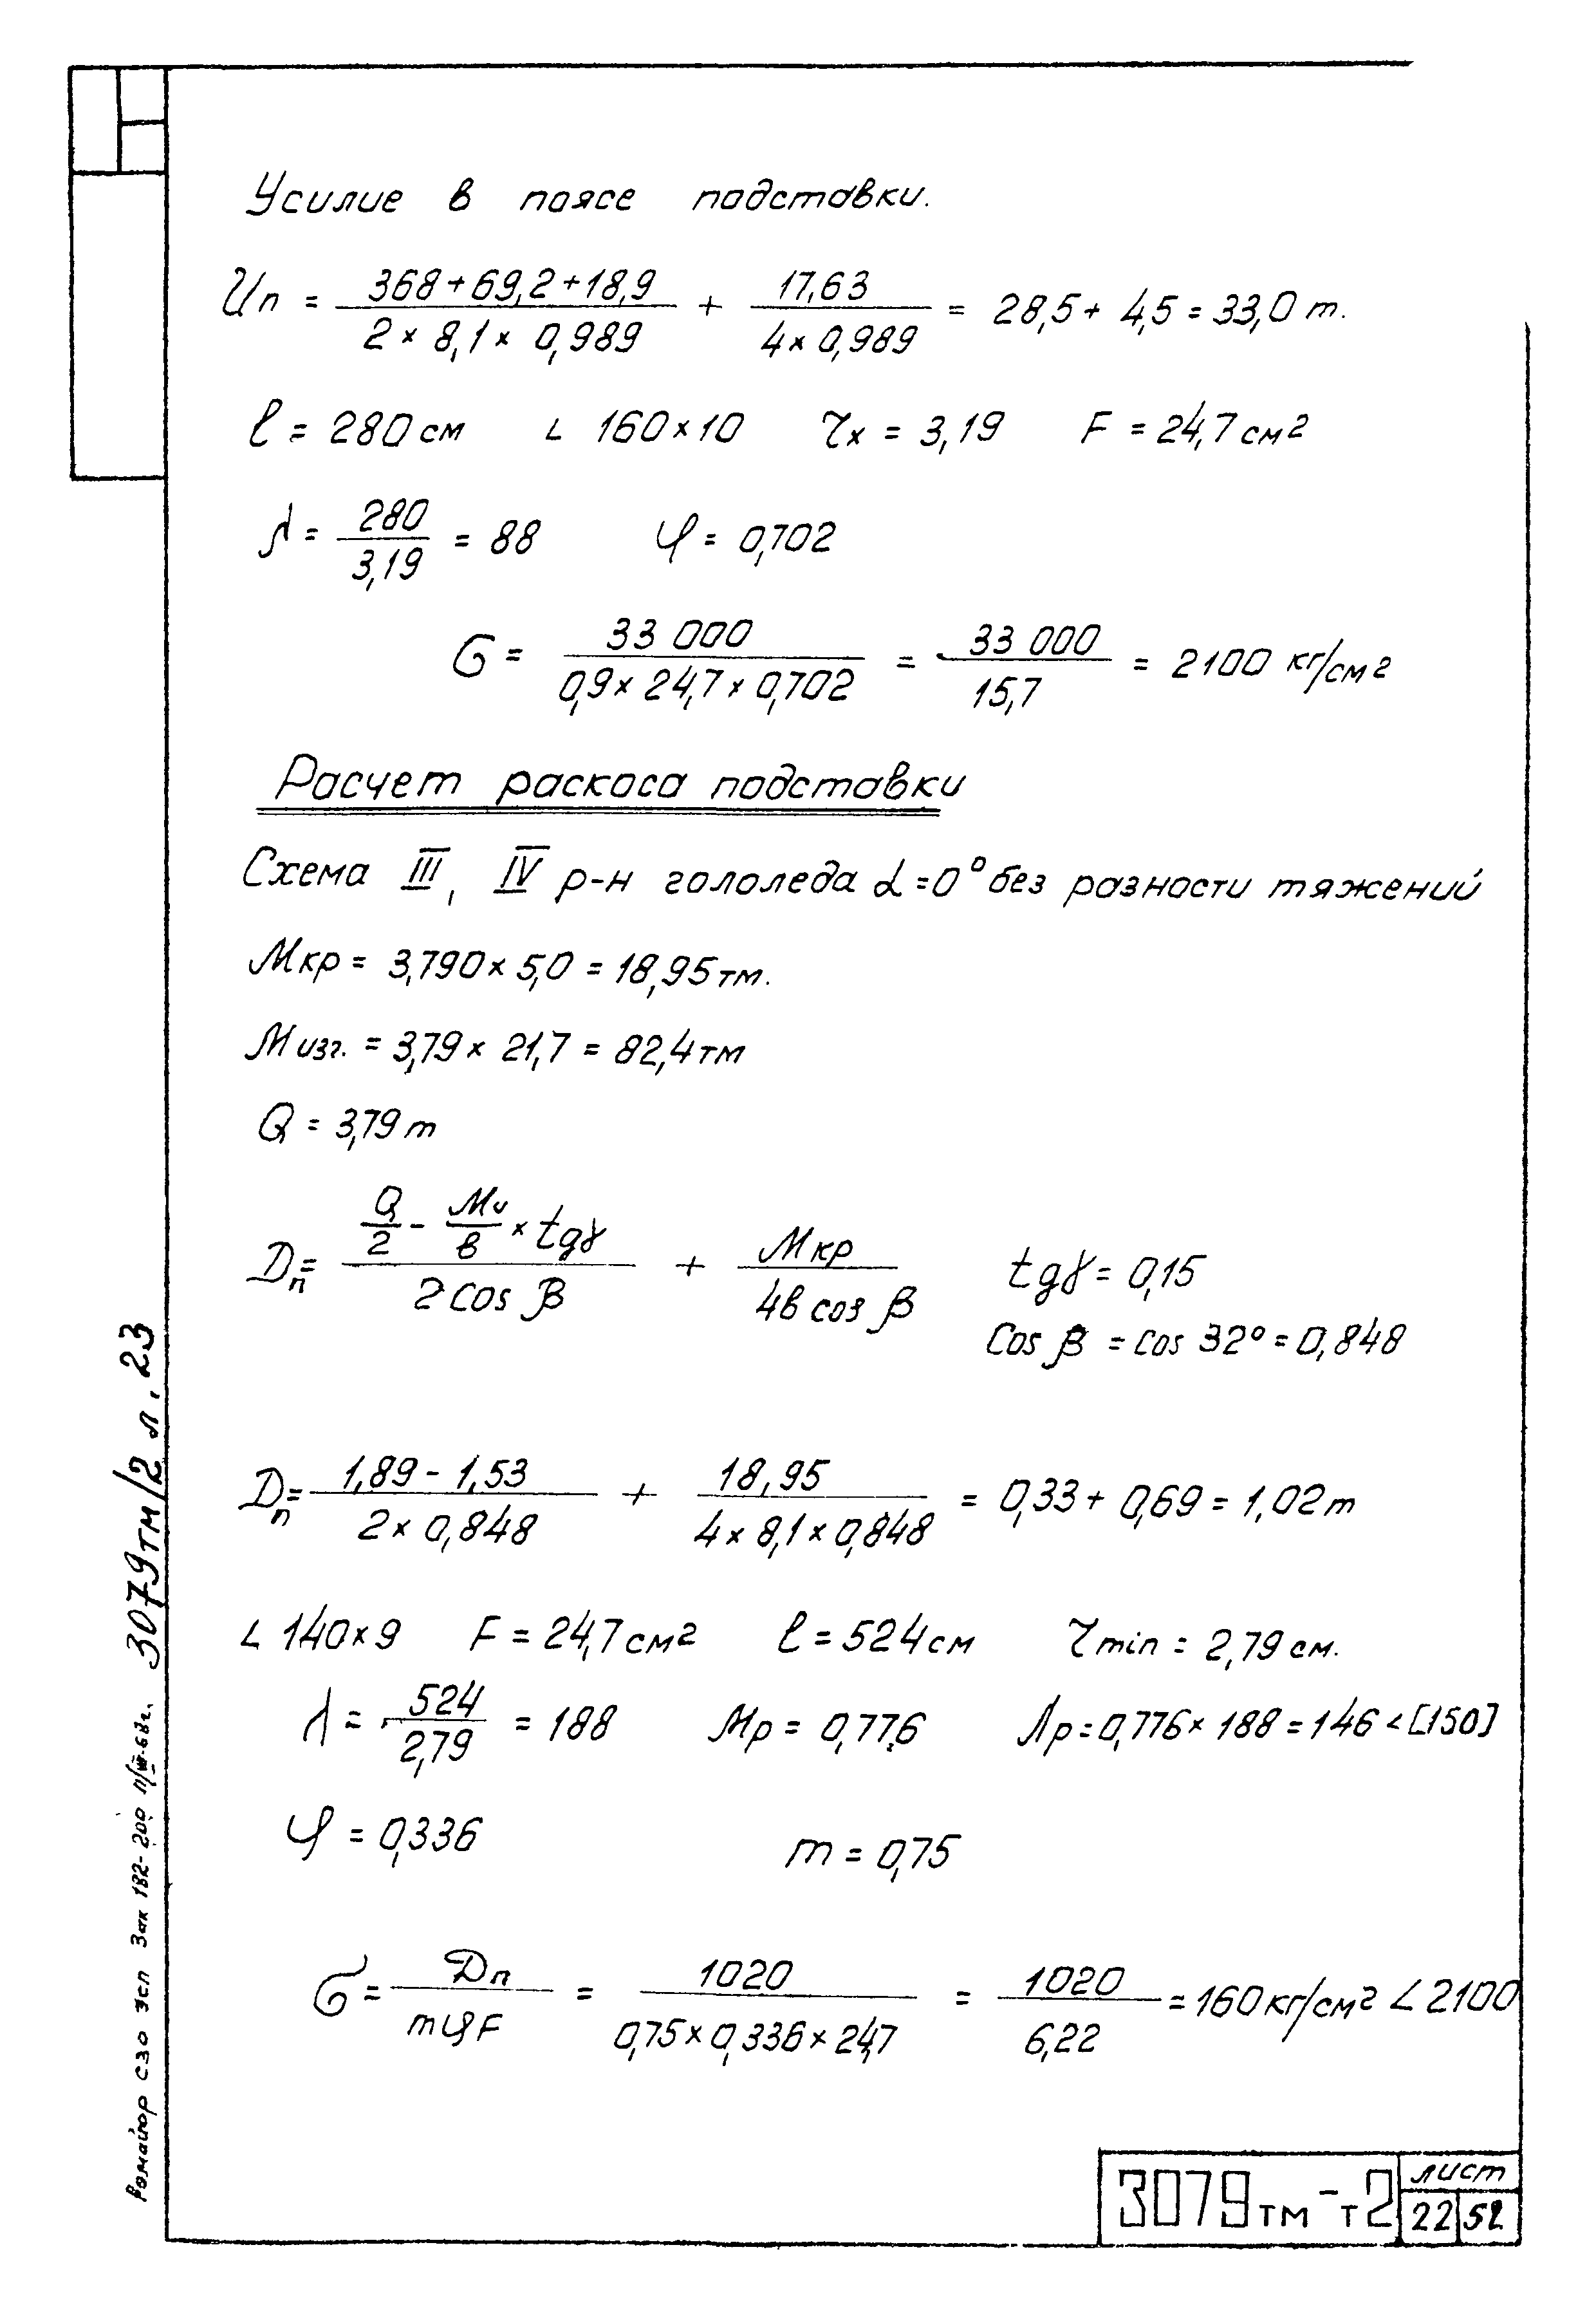 Усилие в поясе подставки.
Uп = (368+69,2+18,9)/(2×8,1×0,989) + 17,63/(4×0,989) = 28,5+4,5=33,0 т.
ℓ = 280 см ∟ 160×10 τx = 3,19 F = 24,7 см²
λ = 280/3,19 = 88 φ = 0,702
σ = 33 000/(0,9×24,7×0,702) = 33 000/15,7 = 2100 кг/см²
Расчет раскоса подставки
Схема III, IV р-н гололеда α=0° без разности тяжений
Mкр = 3,790×5,0 = 18,95 тм.
Mизг. = 3,79×21,7 = 82,4 тм
Q = 3,79 т
Dп = (Q/2 - Mи/в × tgγ)/(2 cos β) + Mкр/(4в cos β) tgγ = 0,15
Cos β = cos 32° = 0,848
Dп = (1,89-1,53)/(2×0,848) + 18,95/(4×8,1×0,848) = 0,33+0,69=1,02 т
∟ 140×9 F = 24,7 см² ℓ = 524 см τmin = 2,79 см.
λ = 524/2,79 = 188 Mр = 0,776 λр=0,776×188=146<[150]
φ = 0,336 m = 0,75
σ = Dп/(mφF) = 1020/(0,75×0,336×24,7) = 1020/6,22 = 160 кг/см² < 2100
3079тм-т2
лист
22 52
3079тм/2 л. 23
СЗО ЭСП Зак 182-200